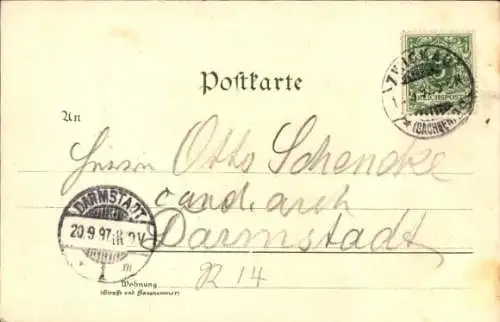 ZWICKAU
REICHSPOST
* (SACHSEN)
Postkarte
An
Herrn Otto Schencke
cand. arch
Darmstadt
DARMSTADT
20.9.97. 8-9V.
R 14
Wohnung
(Straße und Hausnummer)